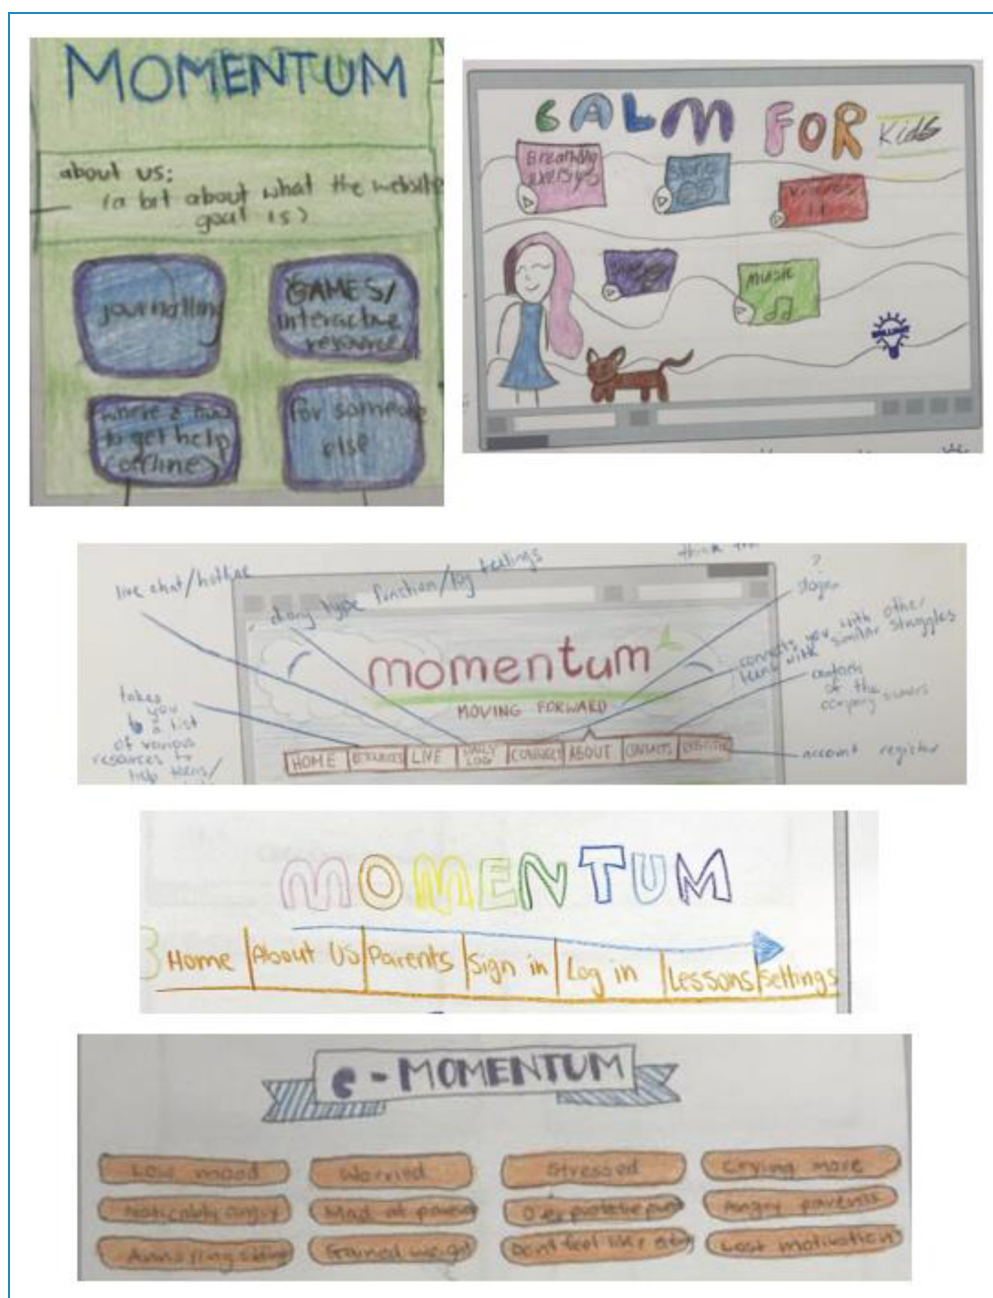 MOMENTUM
about us:
(a bit about what the website
goal is)
journalling
GAMES/
interactive
resource
where & how
to get help
(offline)
for someone
else
CALM FOR Kids
Breathing
exersiys
videos
music
BRILLIANT
live chat/hotline
diary type function/log feelings
think
?
slogan
connects you with other
teens with similar struggles
contacts
of the
company owners
takes
you
to a list
of various
resources to
help teens/
account register
momentum
MOVING FORWARD
HOME
LIVE
DAILY
LOG
CONNECT
ABOUT
CONTACTS
REGISTER
MOMENTUM
Home
About Us
Parents
Sign in
Log in
Lessons
settings
e-MOMENTUM
Low mood
Worried
Stressed
Crying more
Noticably angry
Mad at parent
Angry parents
Gained weight
Dont feel like
Lost motivation